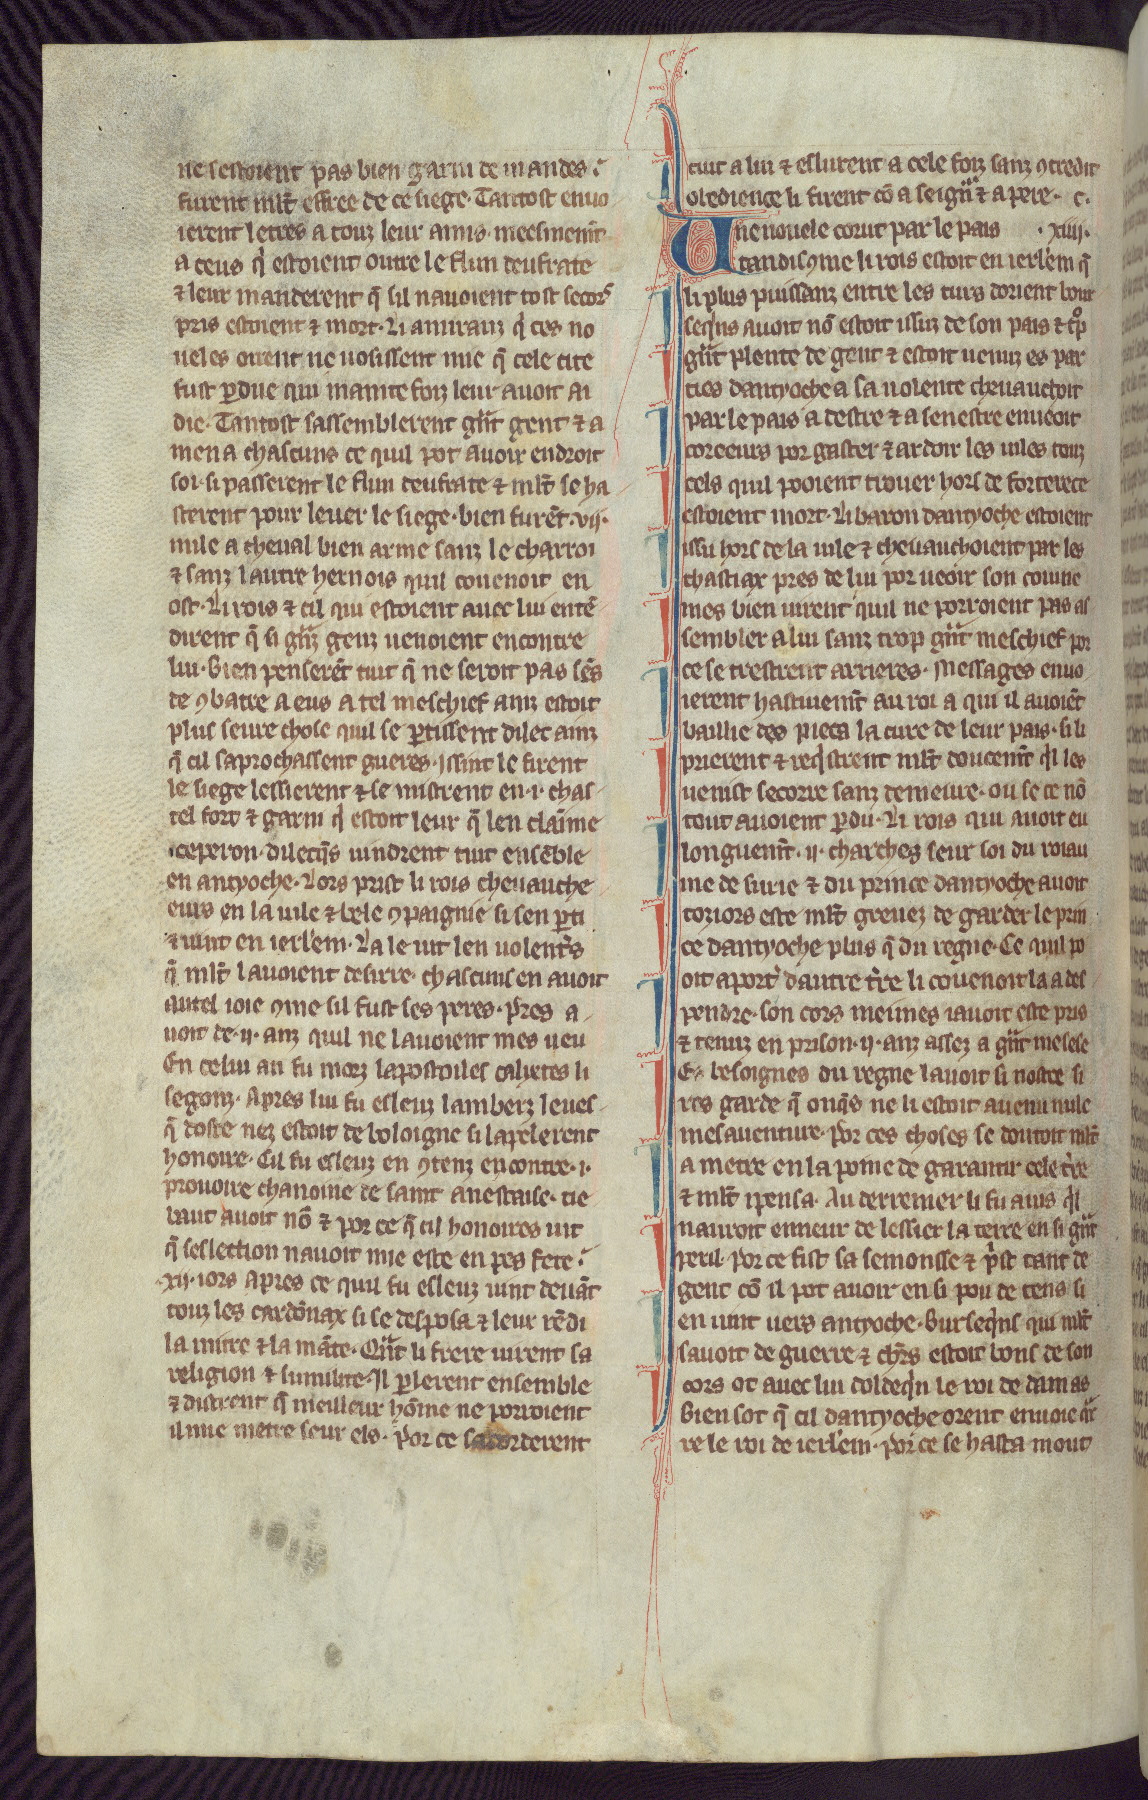 ne sestoient pas bien garni de viandes ⁊
furent ml̃t effree de ce siege. Tantost envo
ierent letres a touz leur amis. meesmem̃t
a ceus q̃ estoient outre le flun deufrate
⁊ leur manderent q̃ sil navoient tost secors
pris estoient ⁊ mort. Li amirauz q̓ ces no
veles oirent ne vosissent mie q̃ cele cite
fust ꝑdue qui mainte foiz leur avoit ai
die. Tantost sassemblerent gr̃nt gent ⁊ a
mena chascuns ce quil pot avoir endroit
soi. si passerent le flun deufrate ⁊ ml̃t se ha
sterent pour lever le siege. bien furẽt .vij.
mile a cheval bien arme sanz le charroi
⁊ sanz lautre hernois quil covenoit en
ost. Li rois ⁊ cil qui estoient avec lui entẽ
dirent q̃ si gr̃nz genz venoient encontre
lui. Bien penserẽt tuit q̃ ne seroit pas sẽs
de ꝯbatre a eus a tel meschief ainz estoit
plus seure chose quil se ꝑtissent dilec ainz
q̃ cil saprochassent gueres. Issint le firent
le siege lessierent ⁊ se mistrent en .i. chas
tel fort ⁊ garni q̓ estoit leur q̃ len claime
ceperon. dilecq̃s vindrent tuit ensẽble
en antyoche. Lors prist li rois chevauche
eurs en la vile ⁊ bele ꝯpaignie si sen ꝑti
⁊ vint en ierl̃em. La le vit len volentr̃s
q̃ ml̃t lavoient desirre. chascuns en avoit
autel ioie ꝯme sil fust ses peres. pr̃es a
voit de .ij. anz quil ne lavoient mes veu
En celui an fu morz lapostoiles calixtes li
segonz. Apres lui fu esleuz lamberz leves
q̃ doste nez estoit de boloigne si lapelerent
honoire. Cil fu esleuz en ꝯtenz encontre .i.
provoire chanoine de saint anestaise. tie
baut avoit nõ ⁊ por ce q̃ cil honoires vit
q̃ seslection navoit mie este en pes fete ⁊
.xij. iors apres ce quil fu esleuz vint devãt
touz les cardõnax si se desposa ⁊ leur rẽdi
la mitre ⁊ la mãte. Qr̃nt li frere virent sa
religion ⁊ sumilite. Il ꝑlerent ensemble
⁊ distrent q̃ meilleur hõme ne porroient
il mie metre seur els. Por ce sacorderent
tuit a lui ⁊ eslurent a cele foiz sanz ꝯtredit
obedience li firent cõ a seignr̃ ⁊ a pere. c.
Une novele corut par le pais .xiiij.
tandis ꝯme li rois estoit en ierl̃em q̃
li plus puissanz entre les turs dorient bour
seq̓ns avoit nõ estoit issuz de son pais ⁊ tᵒp
gr̃nt plente de gent ⁊ estoit venuz es par
ties dantyoche a sa volente chevauchoit
par le pais a destre ⁊ a senestre enveoit
coreeurs por gaster ⁊ ardoir les viles touz
cels quil pooient trouer hors de forterece
estoient mort. Li baron dantyoche estoient
issu hors de la vile ⁊ chevauchoient par les
chastiax pres de lui por veoir son covine
mes bien virent quil ne porroient pas as
sembler a lui sanz trop gr̃nt meschief por
ce se trestrent arrieres. Messages envo
ierent hastivem̃t au roi a qui il avoiẽt
baillie des pieca la cure de leur pais. si li
prierent ⁊ req̓strent ml̃t doucem̃t q̓l les
venist secorre sanz demeure. ou se ce nõ
tout avoient ꝑdu. Li rois qui avoit eu
longuem̃t .ij. charches seur soi du roiau
me de surie ⁊ du prince dantyoche avoit
toziors este ml̃t grevez de garder le prin
ce dantyoche plus q̃ du regne. Ce quil po
oit aport̉ dautre tr̃re li covenoit la a des
pendre. son cors meimes iavoit este pris
⁊ tenuz en prison .ij. anz assez a gr̃nt mesese
Es besoignes du regne lavoit si nostre si
res garde q̃ onq̃s ne li estoit avenu nule
mesaventure. Por ces choses se doutoit ml̃t
a metre en la poine de garantir cele tr̃re
⁊ ml̃t ipensa. Au derrenier li fu avis q̓l
nauroit enneur de lessier la terre en si gr̃nt
peril. por ce fist sa semonsse ⁊ p̓st tant de
gent cõ il pot avoir en si pou de tens si
en vint vers antyoche. Burseq̓ns qui ml̃t
savoit de guerre ⁊ ch̃rs estoit bons de son
cors ot avec lui doldeq̓n le roi de damas
Bien sot q̃ cil dantyoche orent envoie qr̃
re le roi de ierl̃em. por ce se hasta mout